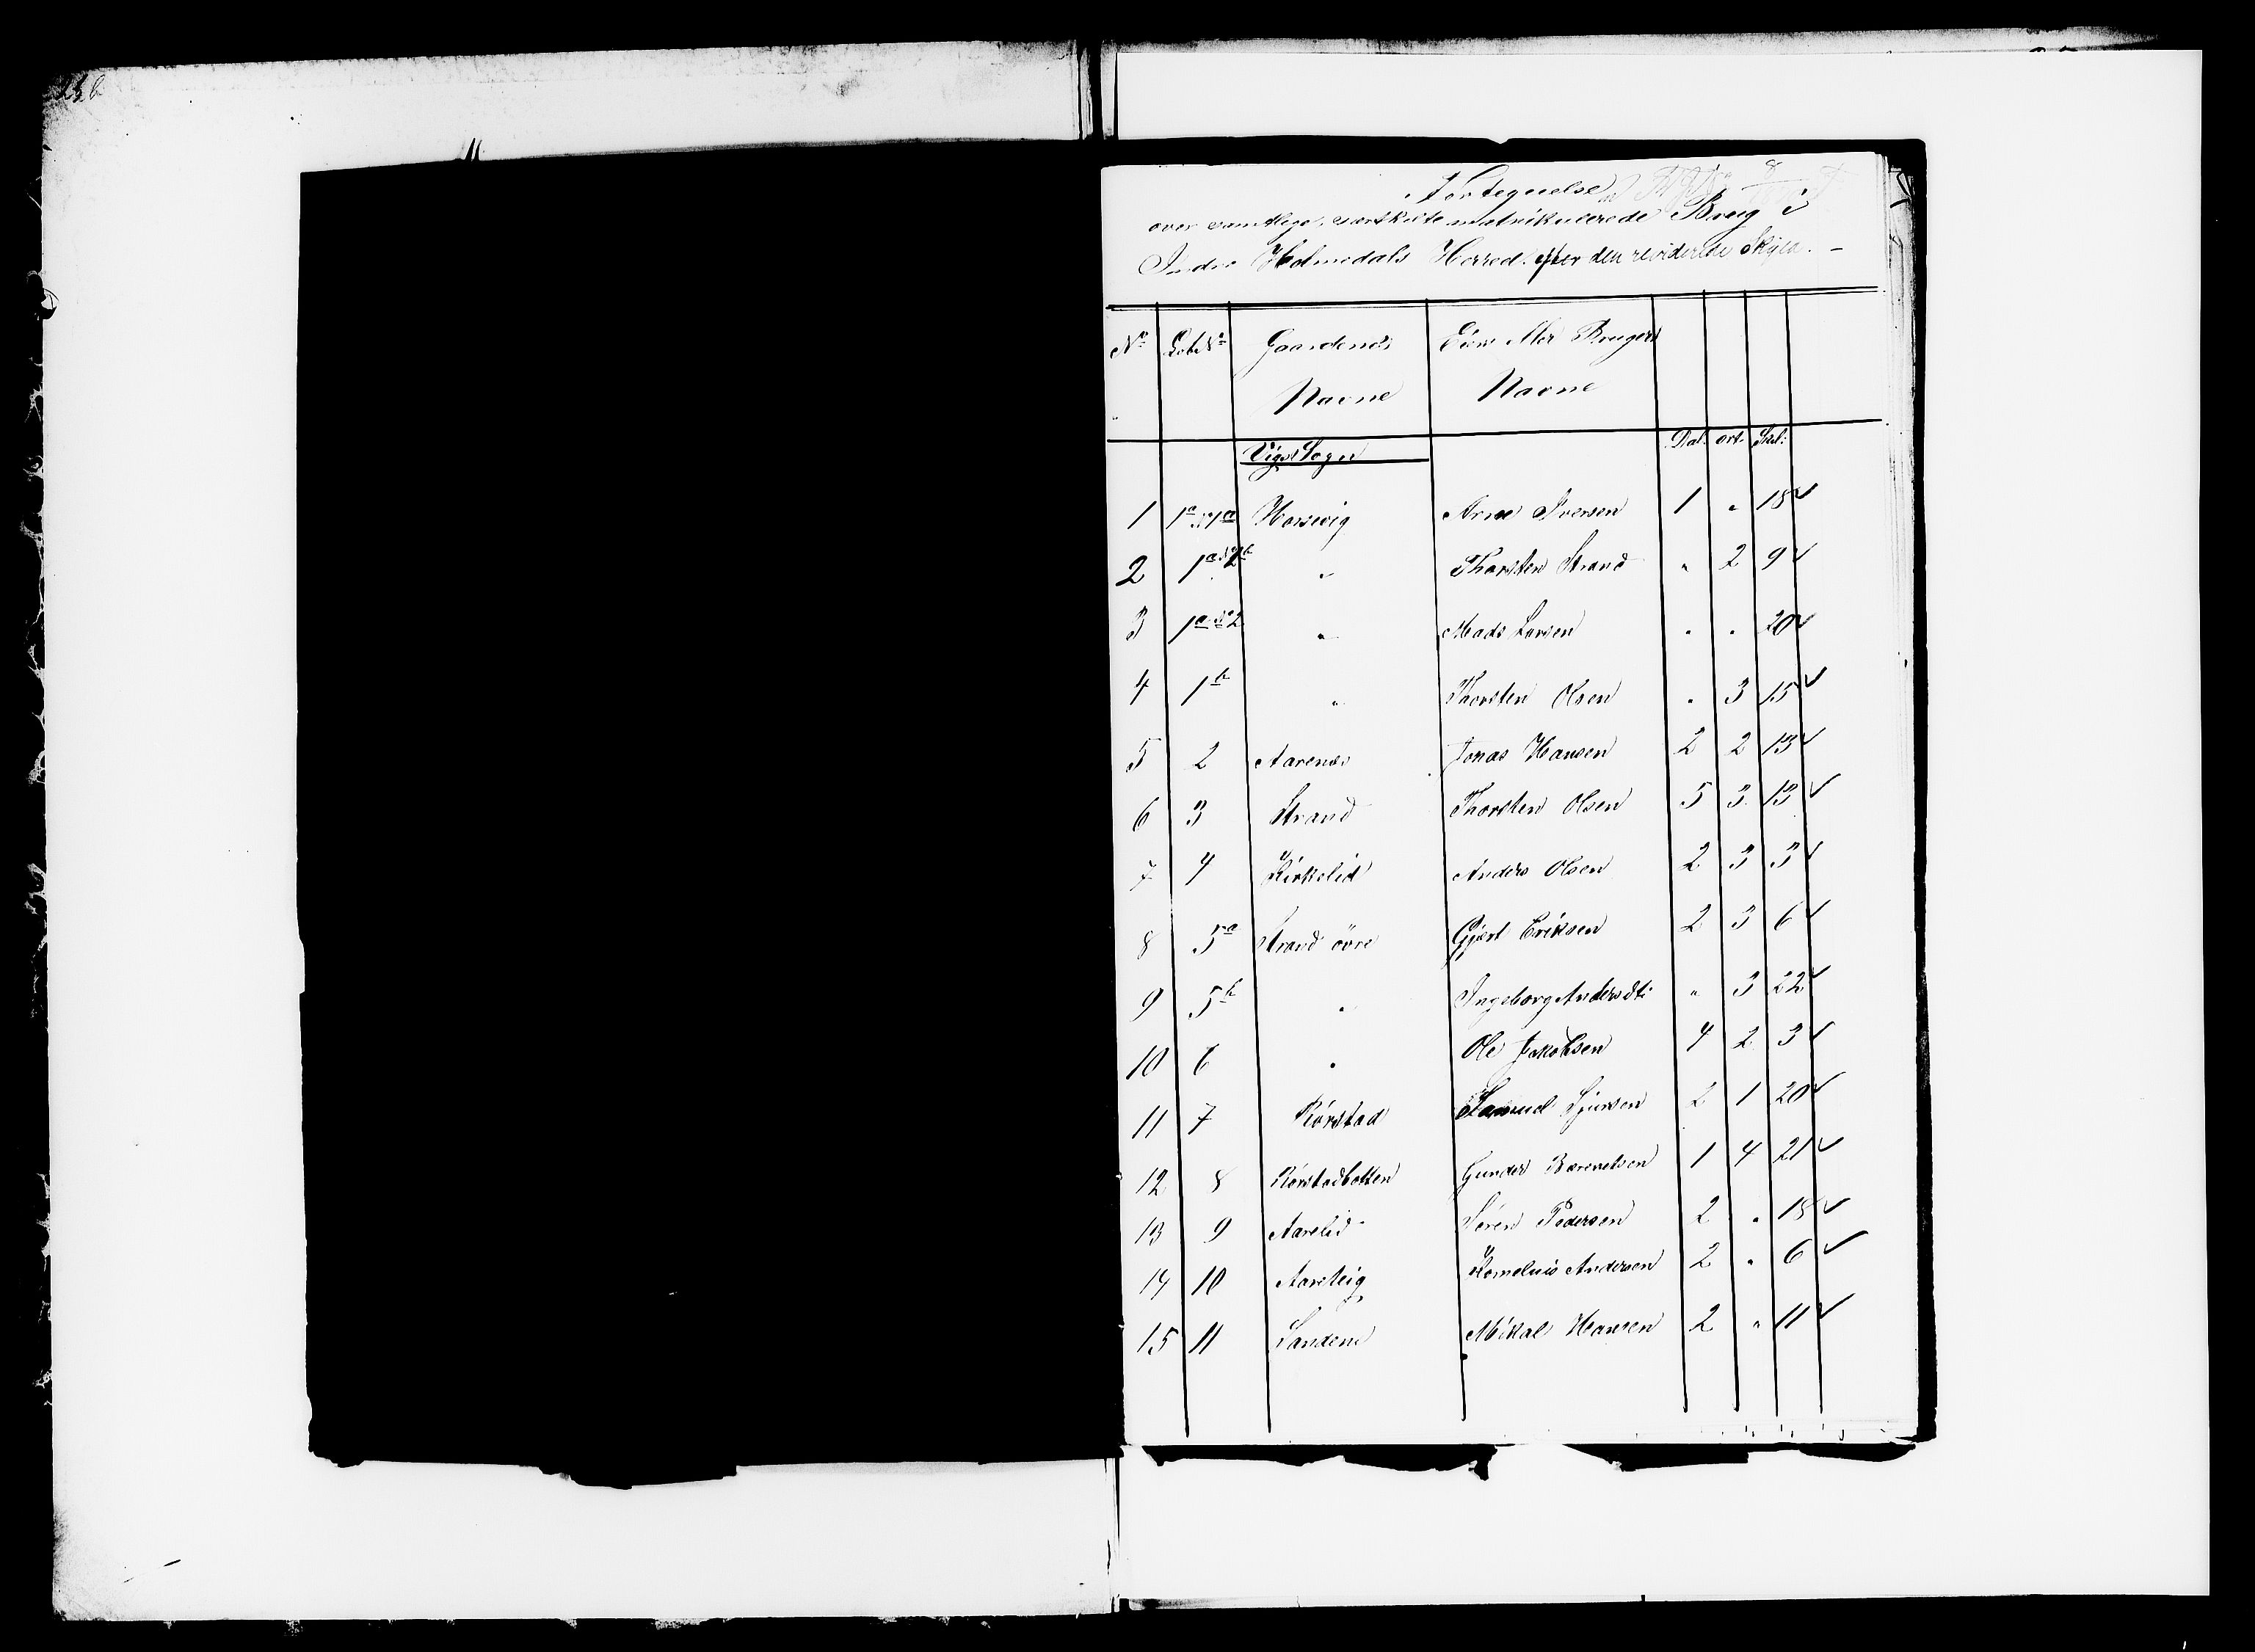 Fortegnelse
over samtlige særskilte matrikulerede Brug i
Indre Holmedals Herred efter den reviderede Skyld. –
No Løb No Gaardens Navne Eier eller Brugers Navne
Vigs Sogn Dal. ort. Skil:
1 1a N1a Horsevig Arne Iversen 1 " 18 ✓
2 1a N2b " Thorsten Strand " 2 9 ✓
3 1a N2 " Mads Larsen " " 20 ✓
4 1b " Thorsten Olsen " 3 15 ✓
5 2 Aarenæs Jonas Hansen 2 2 13 ✓
6 3 Strand Thorsten Olsen 5 3 13 ✓
7 4 Kirkelid Anders Olsen 2 3 3 ✓
8 5a Strand övre Gjert Eriksen 2 3 6 ✓
9 5b " Ingeborg Andersdtr " 3 22 ✓
10 6 " Ole Jakobsen 4 2 3 ✓
11 7 Rørstad Samuel Sjursen 2 1 20 ✓
12 8 Rørstadbotten Gunder 1 4 21 ✓
13 9 Aarelid Søren Pedersen 2 " 18 ✓
14 10 Aarsteig Korneluis Andersen 2 " 6 ✓
15 11 Sandene Mikal Hansen 2 " 11 ✓